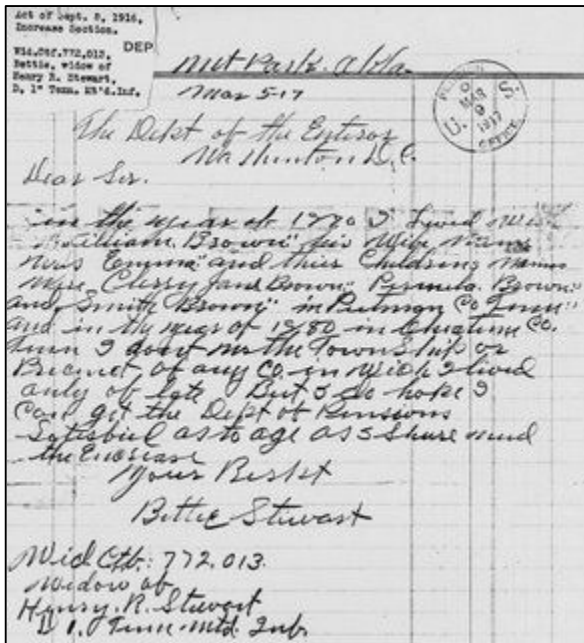 Act of Sept. 8, 1916,
Increase Section.
DEP
Wid.Ctf.772,013,
Bettie, widow of
Henry R. Stewart,
D, 1" Tenn. Mt'd.Inf.
Mt Park. Okla.
Mar 5-17
U. S.
MAR
9
1917
OFFICE
The Dept of the Enteror
Washinton D.C.
Dear Sir.
in the year of 1870 I Lived With
William. Brown" his Wife name
was Emma" and thier Childring names
were Cherry Jane Brown" Brown"
and, Smith Brown" in Putman Co Tenn"
and in the year of 1880 in Cheatime Co.
Tenn I dont no the Town Ship or
Precinct of any Co. in Wich I lived
only of late But I do hope I
Can get the Dept of Pensions
Satisfied as to age as I Shure need
the Encrease
Your Reskt
Bettie Stewart
Wid Ctf: 772,013.
Widow of
Henry. R. Stewart
D 1. Tenn. Mtd. Inf.